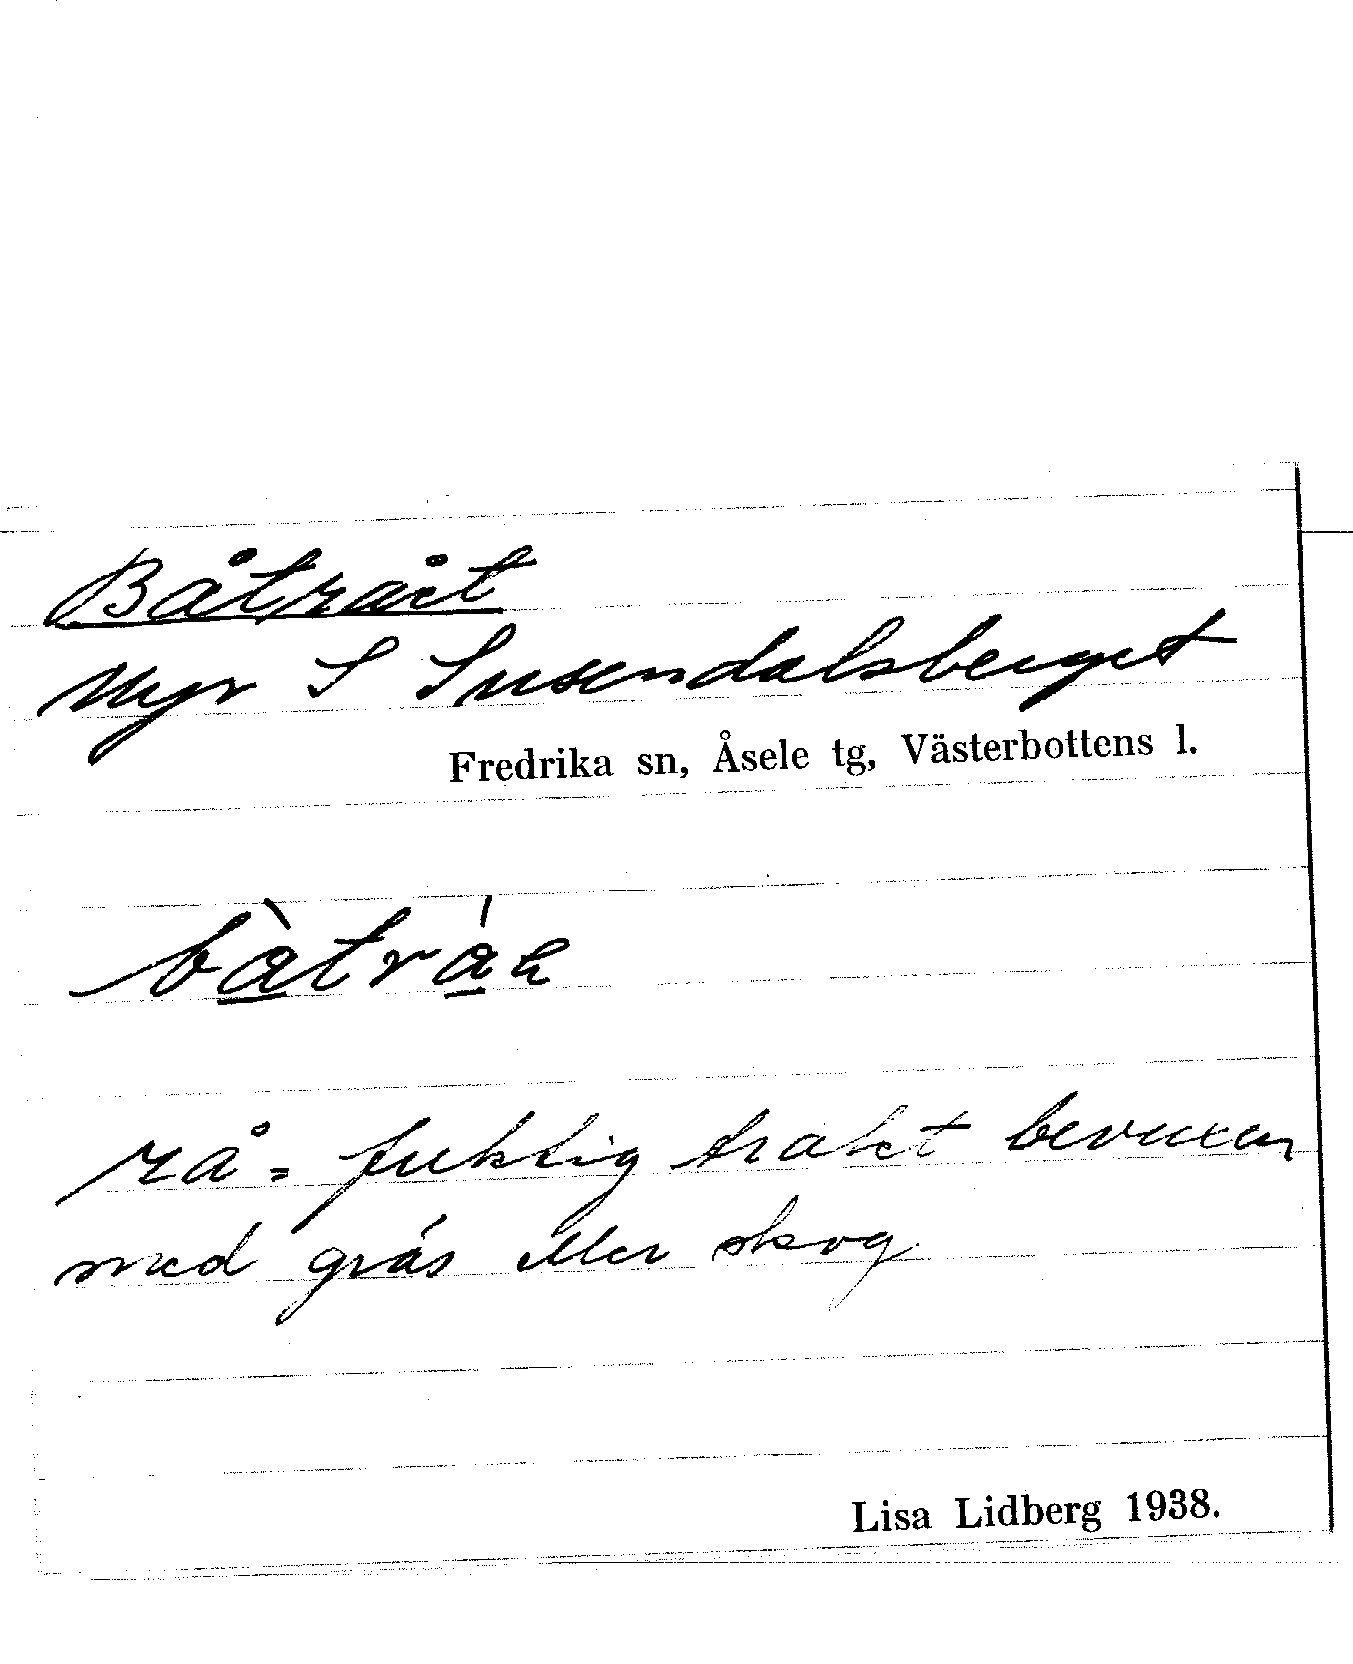 Båtrået
Myr S Susendalsberget
Fredrika sn, Åsele tg, Västerbottens l.
rå = fuktig trakt bevuxen
med gräs eller skog
Lisa Lidberg 1938.